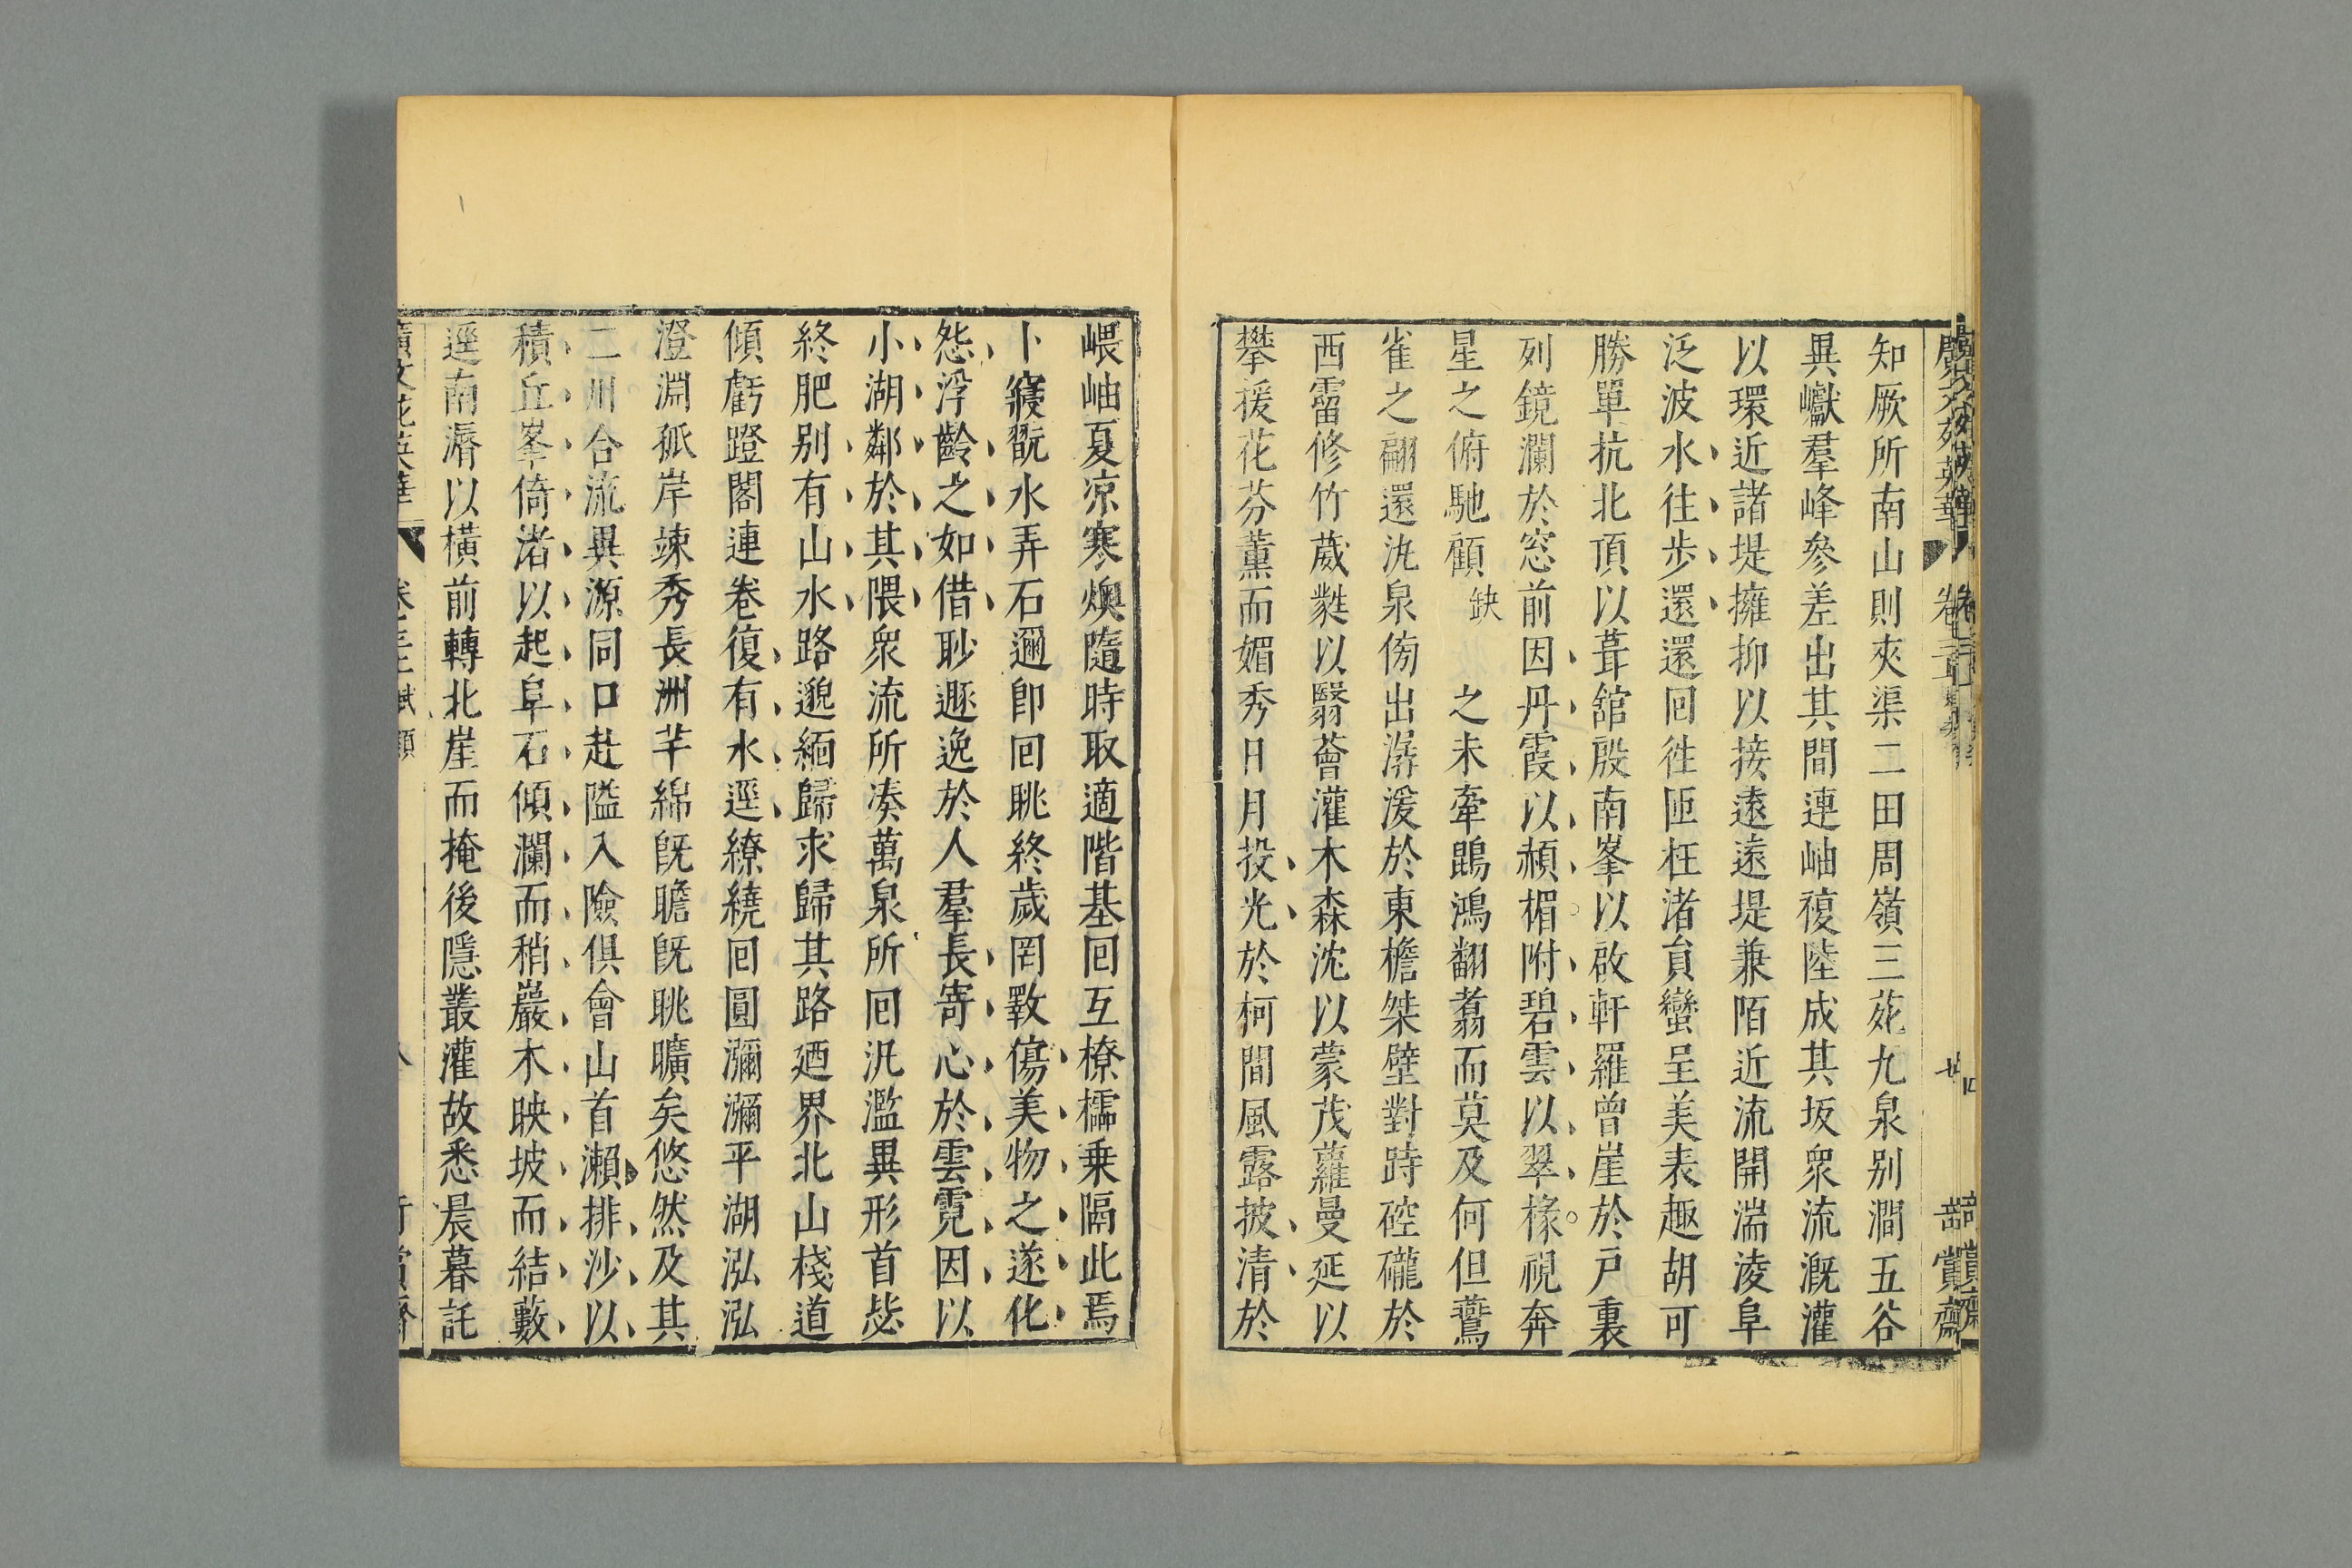 知厥所南山則夾渠二田周嶺三苑九泉别澗五谷
異巘羣峰參差出其間連岫複陸成其坂衆流溉灌
以環近諸堤擁抑以接遠遠堤兼陌近流開湍淩阜
泛波水往步還還回徃匝枉渚貟巒呈美表趣胡可
勝單抗北頂以葺舘殷南峯以啟軒羅曾崖於戸裏
列鏡瀾於窓前因丹霞以赬楣附碧雲以翠椽視奔
星之俯馳顧 缺 之未牽鵾鴻翻翥而莫及何但鷰
雀之翩還氿泉傍出潺湲於東檐桀壁對跱硿礲於
西霤修竹葳蕤以翳薈灌木森沈以蒙茂蘿曼延以
攀援花芬薰而媚秀日月投光於柯間風露披清於
嵔岫夏凉寒燠隨時取適階基回互橑檽乗隔此焉
卜寢翫水弄石邇卽回眺終歳罔斁傷美物之遂化
怨浮齡之如借眇遯逸於人羣長寄心於雲霓因以
小湖鄰於其隈衆流所凑萬泉所回氿濫異形首毖
終肥别有山水路邈緬歸求歸其路廼界北山棧道
傾虧蹬閣連卷復有水逕繚繞回圓瀰瀰平湖泓泓
澄淵孤岸竦秀長洲芊綿旣瞻旣眺曠矣悠然及其
二川合流異源同口赴隘入險俱會山首瀨排沙以
積丘峯倚渚以起阜石傾瀾而稍巖木映坡而結藪
逕南漘以橫前轉北崖而掩後隱叢灌故悉晨暮託